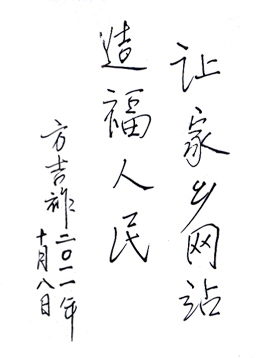 让家乡网站
造福人民
方吉祚二〇一一年
十月八日